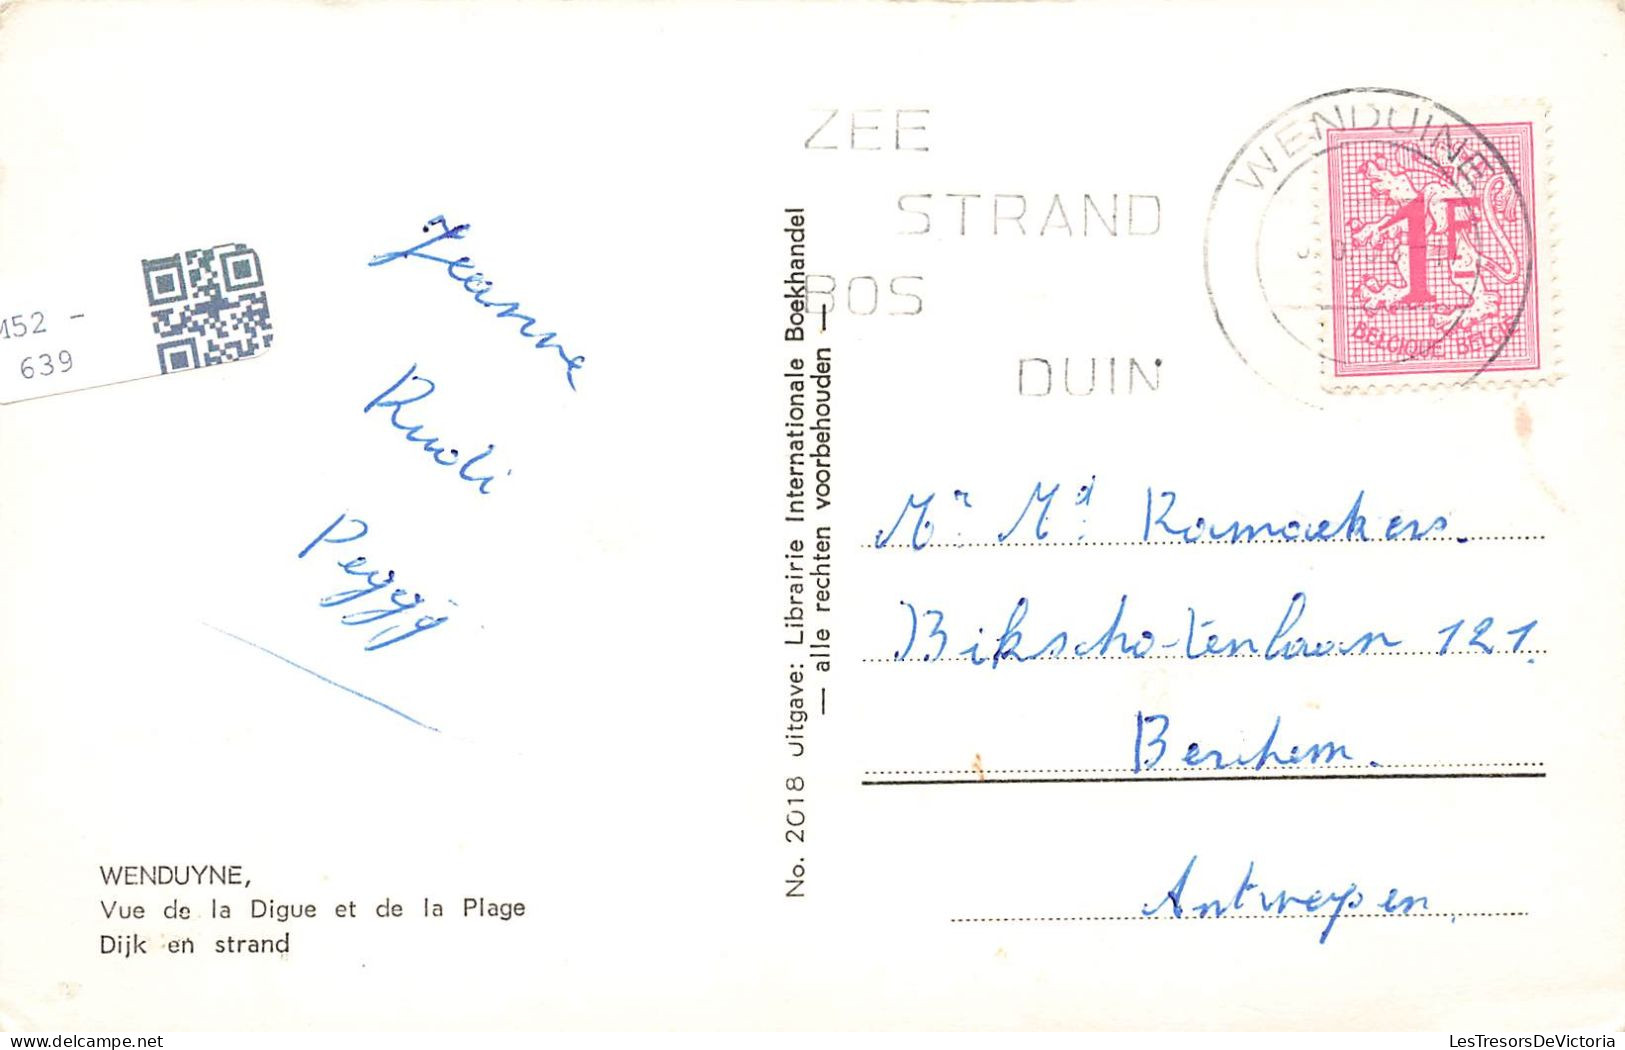 M52 -
639
Jeanne
Rudi
Peggy
WENDUYNE,
Vue de la Digue et de la Plage
Dijk en strand
No. 2018 Uitgave: Librairie Internationale Boekhandel
— alle rechten voorbehouden —
ZEE
STRAND
BOS
DUIN
WENDUINE
1F
BELGIQUE BELGIE
Mr Md Ramaekers.
Bikschotenlaan 121.
Berchem.
Antwerpen.
LesTresorsDeVictoria